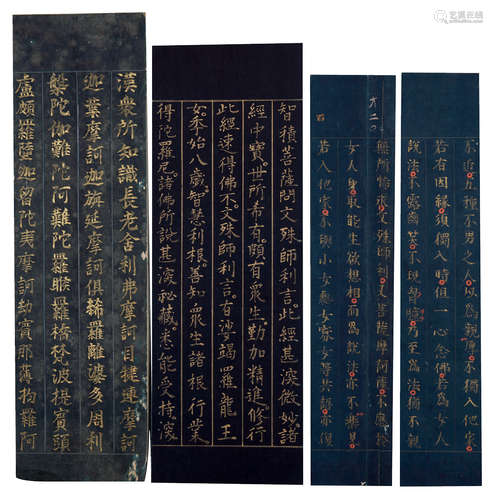 漢衆所知識長老舍利弗摩訶目犍連摩訶
迦葉摩訶迦旃延摩訶俱絺羅離婆多周利
槃陀伽難陀阿難陀羅睺羅憍梵波提賓頭
盧頗羅墮迦留陀夷摩訶劫賓那薄拘羅阿
智積菩薩問文殊師利言此經甚深微妙諸
經中寶世所希有頗有衆生勤加精進修行
此經速得佛不文殊師利言有娑竭羅龍王
女年始八歲智慧利根善知衆生諸根行業
得陀羅尼諸佛所說甚深祕藏悉能受持深
無所悕求文殊師利又菩薩摩訶薩不應於
女人身取能生欲想相而爲說法亦不樂見
若入他家不與小女處女寡女等共語亦復
不近五種不男之人以爲親厚不獨入他家
若有因緣須獨入時但一心念佛若爲女人
說法不露齒笑不現胸臆乃至爲法猶不親